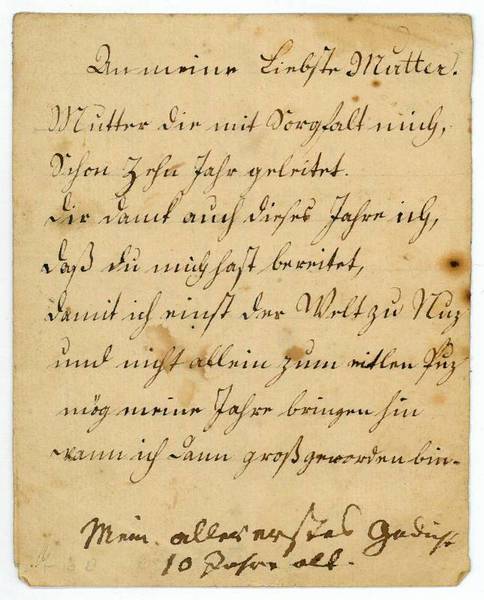 An meine Liebste Mutter.
Mutter die mit Sorgfalt mich,
Schon Zehn Jahr geleitet.
dir danck auch dieses Jahre ich,
daß du mich hast bereitet,
damit ich einst der Welt zu Nuz
und nicht allein zum eitlen Puz
mög meine Jahre bringen hin
wann ich dann groß geworden bin.
Mein allererstes Gedicht
10 Jahre alt.